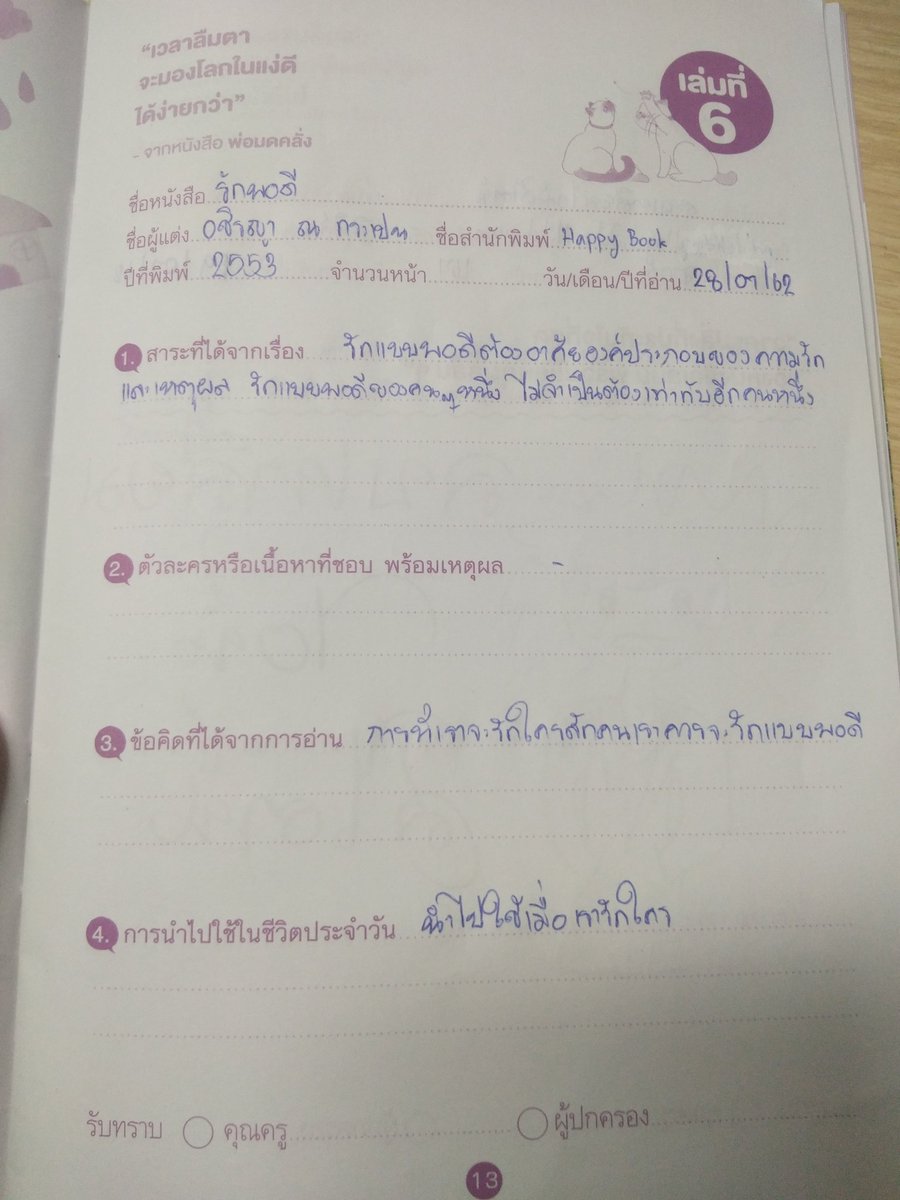 “เวลาลืมตา
จะมองโลกในแง่ดี
ได้ง่ายกว่า”
- จากหนังสือ พ่อมดคลั่ง
เล่มที่
6
ชื่อหนังสือ รักพอดี
ชื่อผู้แต่ง อชิรญา ณ ชื่อสำนักพิมพ์ Happy Book
ปีที่พิมพ์ 2553 จำนวนหน้า วัน/เดือน/ปีที่อ่าน 28/07/62
1. สาระที่ได้จากเรื่อง รักแบบพอดีต้องอาศัยองค์ประกอบของความรัก
และเหตุผล รักแบบพอดีของคนๆหนึ่ง ไม่จำเป็นต้องเท่ากับอีกคนหนึ่ง
2. ตัวละครหรือเนื้อหาที่ชอบ พร้อมเหตุผล -
3. ข้อคิดที่ได้จากการอ่าน การที่เราจะรักใครสักคนเราควรจะรักแบบพอดี
4. การนำไปใช้ในชีวิตประจำวัน นำไปใช้เมื่อเรารักใคร
รับทราบ คุณครู ผู้ปกครอง
13